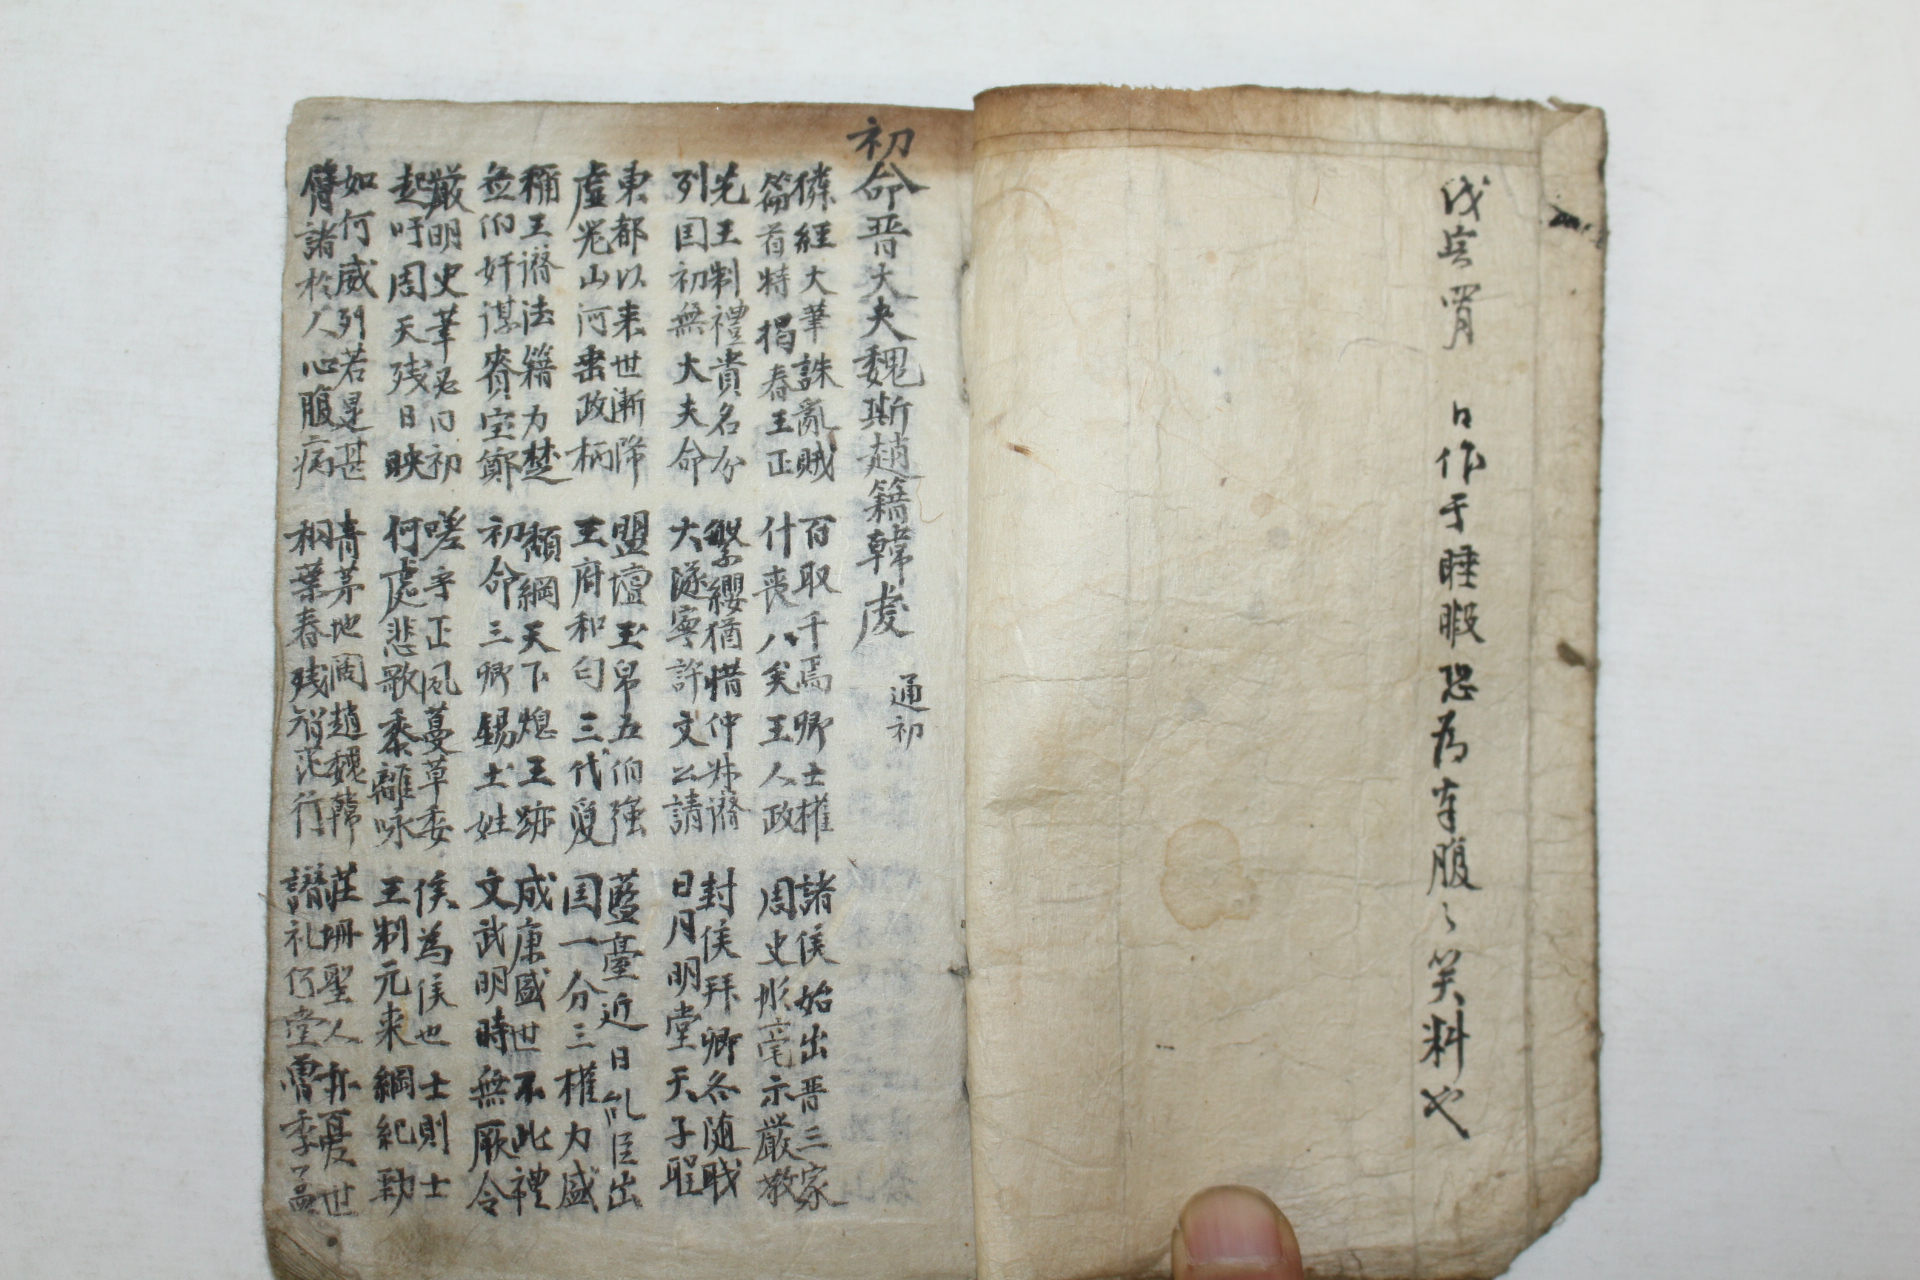 日作于睡暇恐為奉腹〻笑料也
初命晋大夫魏斯趙籍韓虔
通初
僯經大筆誅亂賊
篇首特揭春王正
百取千焉卿士權
什喪八矣王人政
諸侯始出晋三家
周史彤毫示嚴敎
先王制禮貴名分
列国初無大夫命
繁纓猶惜仲叔濟
大隧寧許文公請
封侯拜卿各随戝
日月明堂天子聖
東都以来世漸降
虛器山河垂政柄
盟壇玉帛五伯强
王府和勻三代夏
藍臺近日乱臣出
国一分三權力盛
稱王濟法籍力楚
無伯奸謀賚室鄭
頹綱天下熄王跡
初命三卿錫土姓
成康盛世不此禮
文武明時無厥令
嚴明史筆 初
起吁周天残日映
嗟乎正風蔓草委
何處悲歌黍離咏
侯為侯也士則士
王制元来綱紀勁
如何威列若是甚
臂諸於人心腹病
靑茅地濶趙魏韓
桐葉春残智范行
莊珊聖人亦憂世
譖礼何堂魯季孟